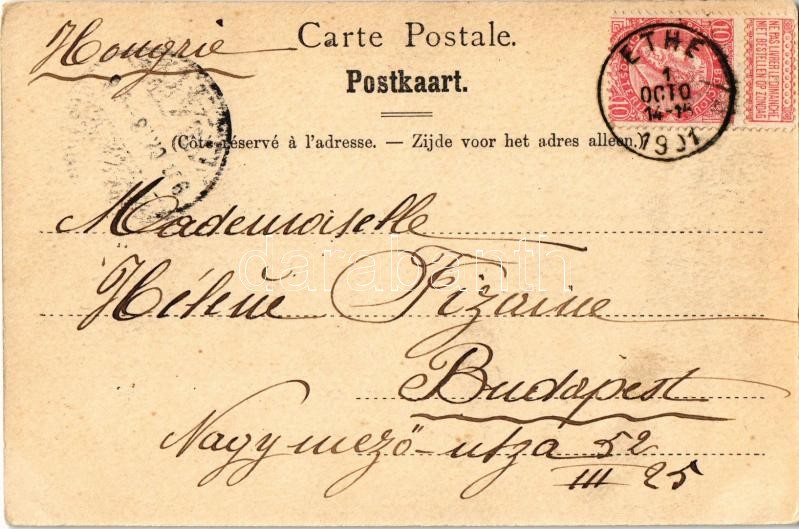 Hongrie
Carte Postale.
Postkaart.
(Côté réservé à l'adresse. — Zijde voor het adres alleen.)
ETHE
1
OCTO
14-15
1901
10
10
NE PAS LIVRER LE DIMANCHE
NIET BESTELLEN OP ZONDAG
Mademoiselle
Hélène Fizaine
Budapest
Nagymező-utza 52
III 25
darabanth